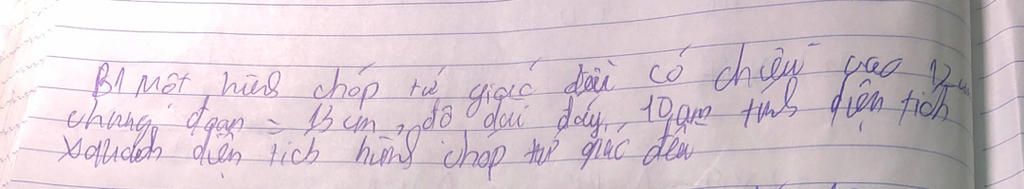 B1 Một hình chóp tứ giác đều có chiều cao 12cm
chung đoạn = 13 cm, độ dài đáy, 10cm tính diện tích
xquanh diện tích hình chóp tứ giác đều